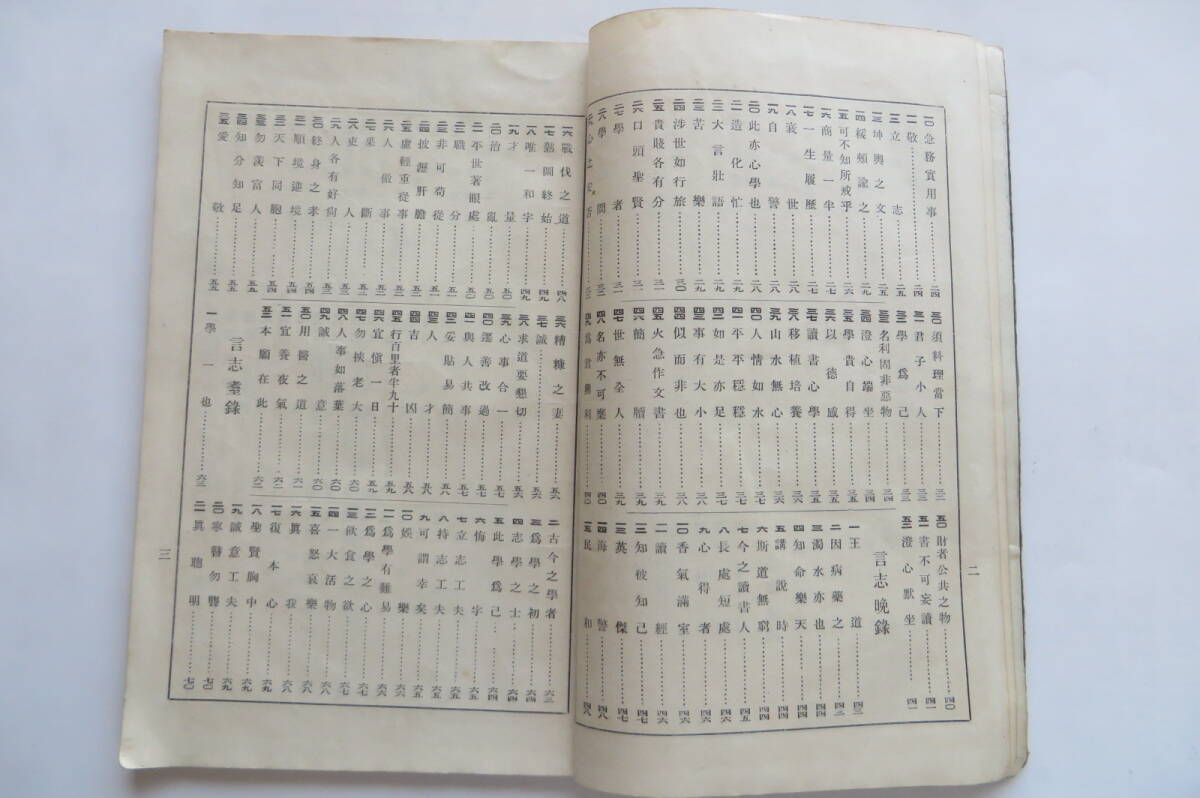 一〇 急務實用事 二四
一一 敬 二四
一二 立志 二五
一三 坤輿之文 二五
一四 綏頰諭之 二九
一五 可不知所戒乎 二六
一六 商量一半 二七
一七 一生履歷 二七
一八 衰世 二八
一九 自警 二八
二〇 此亦心學也 二八
二一 造化忙 二九
二二 大言壯語 二九
二三 苦樂 二九
二四 涉世如行旅 三〇
二五 貴賤各有分 三一
二六 口頭聖賢 三一
二七 學者 三一
二八 學問 三二
三〇 須料理當下 三二
三一 君子小人 三二
三二 學爲己 三三
三三 名利固非惡物 三四
三四 澄心端坐 三四
三五 學貴自得 三五
三六 以德感 三五
三七 讀書心學 三五
三八 移植培養 三六
三九 山水無心 三六
四〇 人情如水 三七
四一 平平穩穩 三七
四二 如是亦足 三七
四三 事有大小 三八
四四 似而非也 三八
四五 火急作文書 三九
四六 簡牘 三九
四七 世無全人 三九
四八 名亦不可棄 四〇
五〇 財者公共之物 四〇
五一 書不可妄讀 四一
五二 澄心默坐 四一
言志晚錄
一 王道 四三
二 因病藥之 四三
三 濁水亦也 四四
四 知命樂天 四四
五 講說時 四四
六 斯道無窮 四四
七 今之讀書人 四五
八 長處短處 四六
九 心得者 四六
一〇 香氣滿室 四六
一一 讀經 四六
一二 知彼知己 四七
一三 英傑 四七
一四 海警 四八
一五 民和 四八
二
一六 戰伐之道 四八
一七 熟圖終始 四九
一八 唯一和字 四九
一九 才量 五〇
二〇 治亂 五〇
二一 平世著眼處 五〇
二二 職分 五一
二三 非可苟從 五一
二四 披瀝肝膽 五二
二五 慮輕重從事 五二
二六 人做事 五二
二七 果斷 五三
二八 吏人 五三
二九 人各有好尙 五三
三〇 終身之孝 五四
三一 順境逆境 五四
三二 天下同胞 五四
三三 勿羨富人 五五
三四 知分知足 五五
三五 愛敬 五五
三六 糟糠之妻 五六
三七 誠 五六
三八 求道要懇切 五六
三九 心事合一 五七
四〇 遷善改過 五七
四一 與人共事 五七
四二 妥貼易簡 五八
四三 人才 五八
四四 吉凶 五八
四五 行百里者半九十 五九
四六 宜愼一日 五九
四七 勿挾老大 六〇
四八 人事如落葉 六〇
四九 誠意 六〇
五〇 用醫之道 六一
五一 宜養夜氣 六二
五二 本願在此 六二
言志耋錄
一 學一也 六三
二 古今之學者 六三
三 爲學之初 六四
四 志學之士 六四
五 此學爲己 六四
六 悔字 六五
七 立志工夫 六五
八 持志工夫 六五
九 可謂幸矣 六五
一〇 娛樂 六六
一一 爲學有難易 六六
一二 爲學之心 六七
一三 飮食之欲 六七
一四 一大活物 六八
一五 喜怒哀樂 六八
一六 眞我 六八
一七 復本心 六九
一八 聖賢胸中 六九
一九 誠意工夫 六九
二〇 寧瞽勿聾 七〇
二一 眞聰明 七〇
三